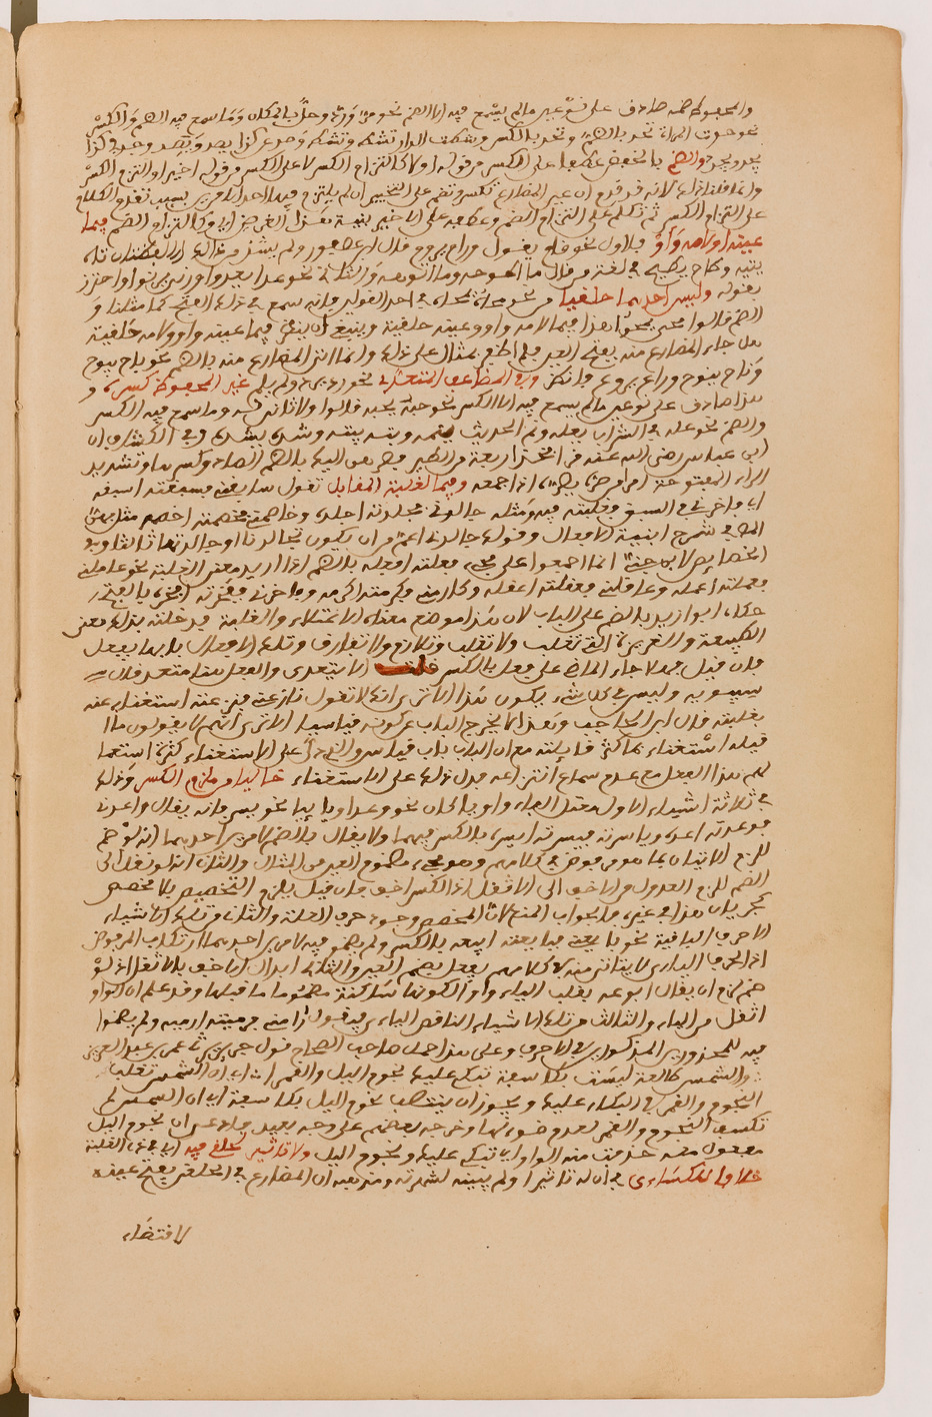 والمحفوظ ضمه صادق على نوعين مالم يسمع فيه الا الضم نحو مره وحل بالمكان وما سمع فيه الضم والكسر
نحو حدت المراة تحد بالضم وتحد بالكسر وشطت الدار تشط وتشط وصد عن كذا يصد ويصد وجد في كذا
يجد ويجد والضم بالخفض عطفا على الكسر من قوله اولا كالتزام الكسر لا على الكسر من قوله اخيرا والتزم الكسر
وانما قلنا ذلك لانه قد قدم ان عين المضارع تكسر وتضم على التخيير ان لم يلتزم فيه احد الامرين بسبب
على التزام الكسر ثم تكلم على التزام الضم وعطفه على الاخير
عينه او لامه واو فالاول نحو قام يقول
يتيه وطاح يطيح في لغة من قال ما اطوحه وما اتوهه والثاني نحو عدا يعدوا
بقوله وليس احدهما حلقيا من نحو محاه في احد القولين فانه سمع في ذلك الفتح كما مثلنا و
الضم قالوا محى يمحوا هذا فيما لامه واو وعينه حلقية وينبغي ان ينظر فيما عينه واو ولامه حلقية
هل جاء المضارع منه بفتح العين فلم اطلع بمثال على ذلك وانما اتى المضارع منه بالضم نحو باح يبوح
وناح ينوح وراع يروع وفي المضاعف المتعدي نحو رده يرده ولمه يلمه غير المحفوظ كسره و
هذا صادق على نوعين مالم يسمع فيه الا الكسر نحو حبه يحبه قالوا ولا ثاني له وما سمع فيه الكسر
والضم نحو عله في الشراب يعله ونم الحديث ينمه وبته يبته وشده يشده وفي الكشاف ان
ابن عباس رضي الله عنه قرا فخذ اربعة من الطير فصرهن اليك بالضم الصاد وكسرها وتشديد
الراء المفتوحة امر من صره يصره اذا جمعه وفيما لغلبة المقابل تقول سابقني فسبقته اسبقه
اي فاخرني في السبق فغلبته فيه ومثله جالدني فجلدته اجلده وخاصمني فخصمته اخصمه
في شرح ابنية الافعال وقوله جالدني اعم من ان يكون تجالدنا او جالدته
الخصايص لابن جني انما اجمعوا على مجيء فعلته افعله بالضم اذا اريد معنى الغلبة نحو عاملني
فعملته اعمله وعاقلني فعقلته اعقله وكارمني فكرمته اكرمه وفاخرني ففخرته افخره بالفتح
حكاه ابو زيد بالضم على الباب لان هذا موضع معناه الاعتلاء والغلبة فدخلته بذلك معنى
الطبيعة والغريزة التي تغلب ولا تغلب وتلازم ولا تفارق وتلك الافعال بابها يفعل
فان قيل فهلا جاء الماضي على فعل بالكسر الا يتعدى والفعل هنا متعد قال
سيبويه وليس في كل شيء يكون هذا الا ترى انك لا تقول نازعني فنزعته استغناء عنه
بغلبته قال ابن الحاجب وهذا لا يخرج الباب عن كونه قياسيا الا ترى انهم لا يقولون ما
قيله استغناء بما اكثر قايلته مع ان الباب باب قياس والذي دل على الاستغناء كثرة استعما
لهم هذا الفعل مع عدم سماع انزعه فدل ذلك على الاستغناء خاليا من ملزم الكسر وذلك
في ثلاثة اشياء الاول معتل الفاء واويا كان نحو وعد او يائيا نحو يسر فانه يقال واعدته
فوعدته اعده وياسرته فيسرته ايسره بالكسر فيهما ولا يقال بالضم لامرين احدهما انه لو ضم
للزم الاتيان بما هو مرفوض في كلامهم وهو مجيء مضموم العين من المثال والثاني انه لو نقل الى
الضم للزم العدول من الاخف الى الاثقل اذ الكسر اخف فان قيل يلزم التخصيص بلا مخصص
لجريان هذا في غيره فالجواب المنع لان المخصص وجود حرف العلة والثاني من تلك الاشياء
الاجوف اليائي نحو بايعني فبايعته ابيعه بالكسر ولم يضمو فيه لامرين احدهما ارتكاب المرفوض
اذ الاجوف اليائي لا ياتي منه في كلامهم يفعل بضم العين والثاني ابدال الاخف بالاثقل اذ لو
ضم لزم ان يقال ابوعه بقلب الياء واوا لكونها ساكنة مضموما ما قبلها وقد علم ان الواو
اثقل من الياء والثالث من تلك الاشياء الناقص اليائي فيقول راميته فرميته ارميه ولم يضموا
فيه للمحذورين المذكورين في الاجوف وعلى هذا حمل صاحب الصحاح قول جرير يرثي عمر بن عبد العزيز
والشمس طالعة ليست بكاسفة تبكي عليك نجوم الليل والقمرا اي ان الشمس تغلب
النجوم والقمر في البكاء عليك ويجوز ان ينتصب نجوم الليل بكاسفة اي ان الشمس لم
تكسف النجوم والقمر لعدم ضوئها وخرجه بعضهم على وجه بعيد ان نجوم الليل
مفعول معه حذفت منه الواو اي تبكي عليك ونجوم الليل ولا تاثير لحلق فيه اي في ذي الغلبة
خلافا للكسائي في ان له تاثيرا ولم يبينه لشهرته وهو ان المضارع في الحلقي يفتح عينه
لاقتضاء